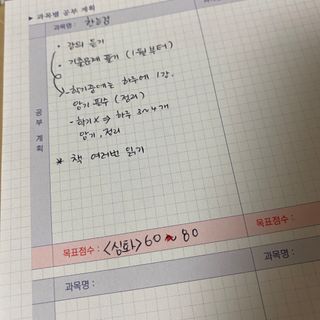 ▶ 과목별 공부 계획
과목명 : 한능검
• 강의 듣기
• 기출문제 풀기 (1월부터)
- 학기중에는 하루에 1강.
암기 필수 (정리)
- 학기X ⇒ 하루 3~4개
암기, 정리
* 책 여러번 읽기
공부 계획
목표점수 : <심화> 60 ~ 80
목표점수 :
과목명 :
과목명 :